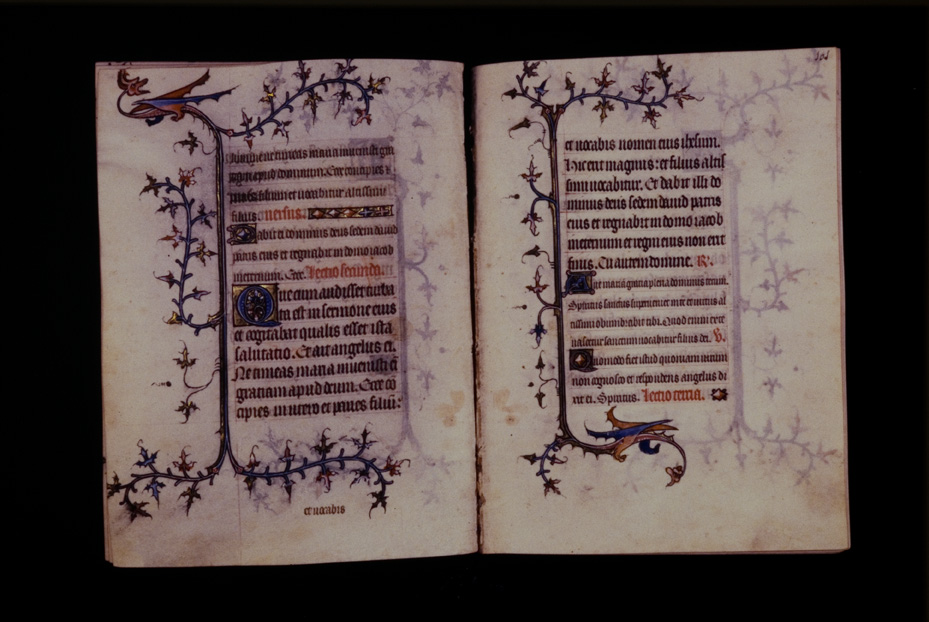 gratiam apud dominum. Ecce concipies &
paries filium et vocabitur altissimi
filius. versus.
Dabit ei dominus deus sedem david
patris eius et regnabit in domo iacob
in eternum. Ecce. Lectio secunda.
Que cum audisset turba
ta est in sermone eius
et cogitabat qualis esset ista
salutatio. Et ait angelus ei.
Ne timeas maria invenisti eī
gratiam apud deum. Ecce cō
cipies in utero et paries filiū:
et vocabis
et vocabis nomen eius ihesum.
Hic erit magnus: et filius altis
simi vocabitur. Et dabit illi do
minus deus sedem david patris
eius et regnabit in domo iacob
in eternum et regni eius non erit
finis. Tu autem domine. R.
Ave maria gratia plena dominus tecum.
Spiritus sanctus superveniet in te et virtus al
tissimi obumbrabit tibi. Quod enim exte
nascetur sanctum vocabitur filius dei. V.
Quomodo fiet istud quoniam virum
non cognosco et respondens angelus di
xit ei. Spiritus. Lectio tercia.